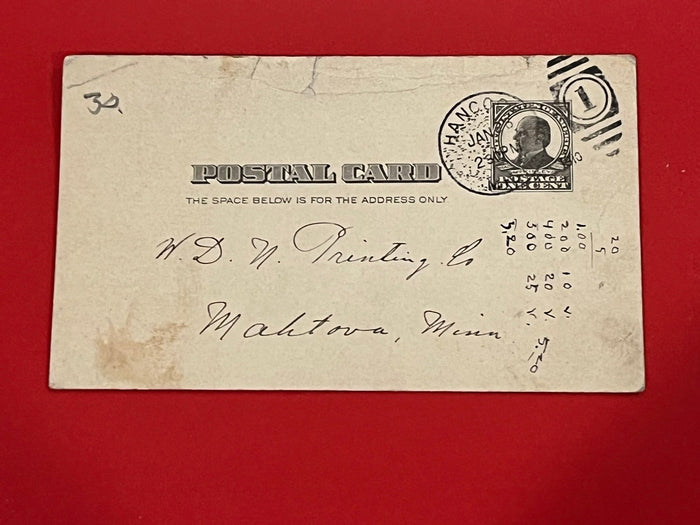 30.
HANCO
JAN
230PM
1910
1
POSTAGE
ONE CENT
POSTAL CARD
THE SPACE BELOW IS FOR THE ADDRESS ONLY.
W. D. N. Printing Co
Mahtova, Minn
20
5
1.00
200 10 v.
400 20 v. 5.20
500 25 v.
5,20